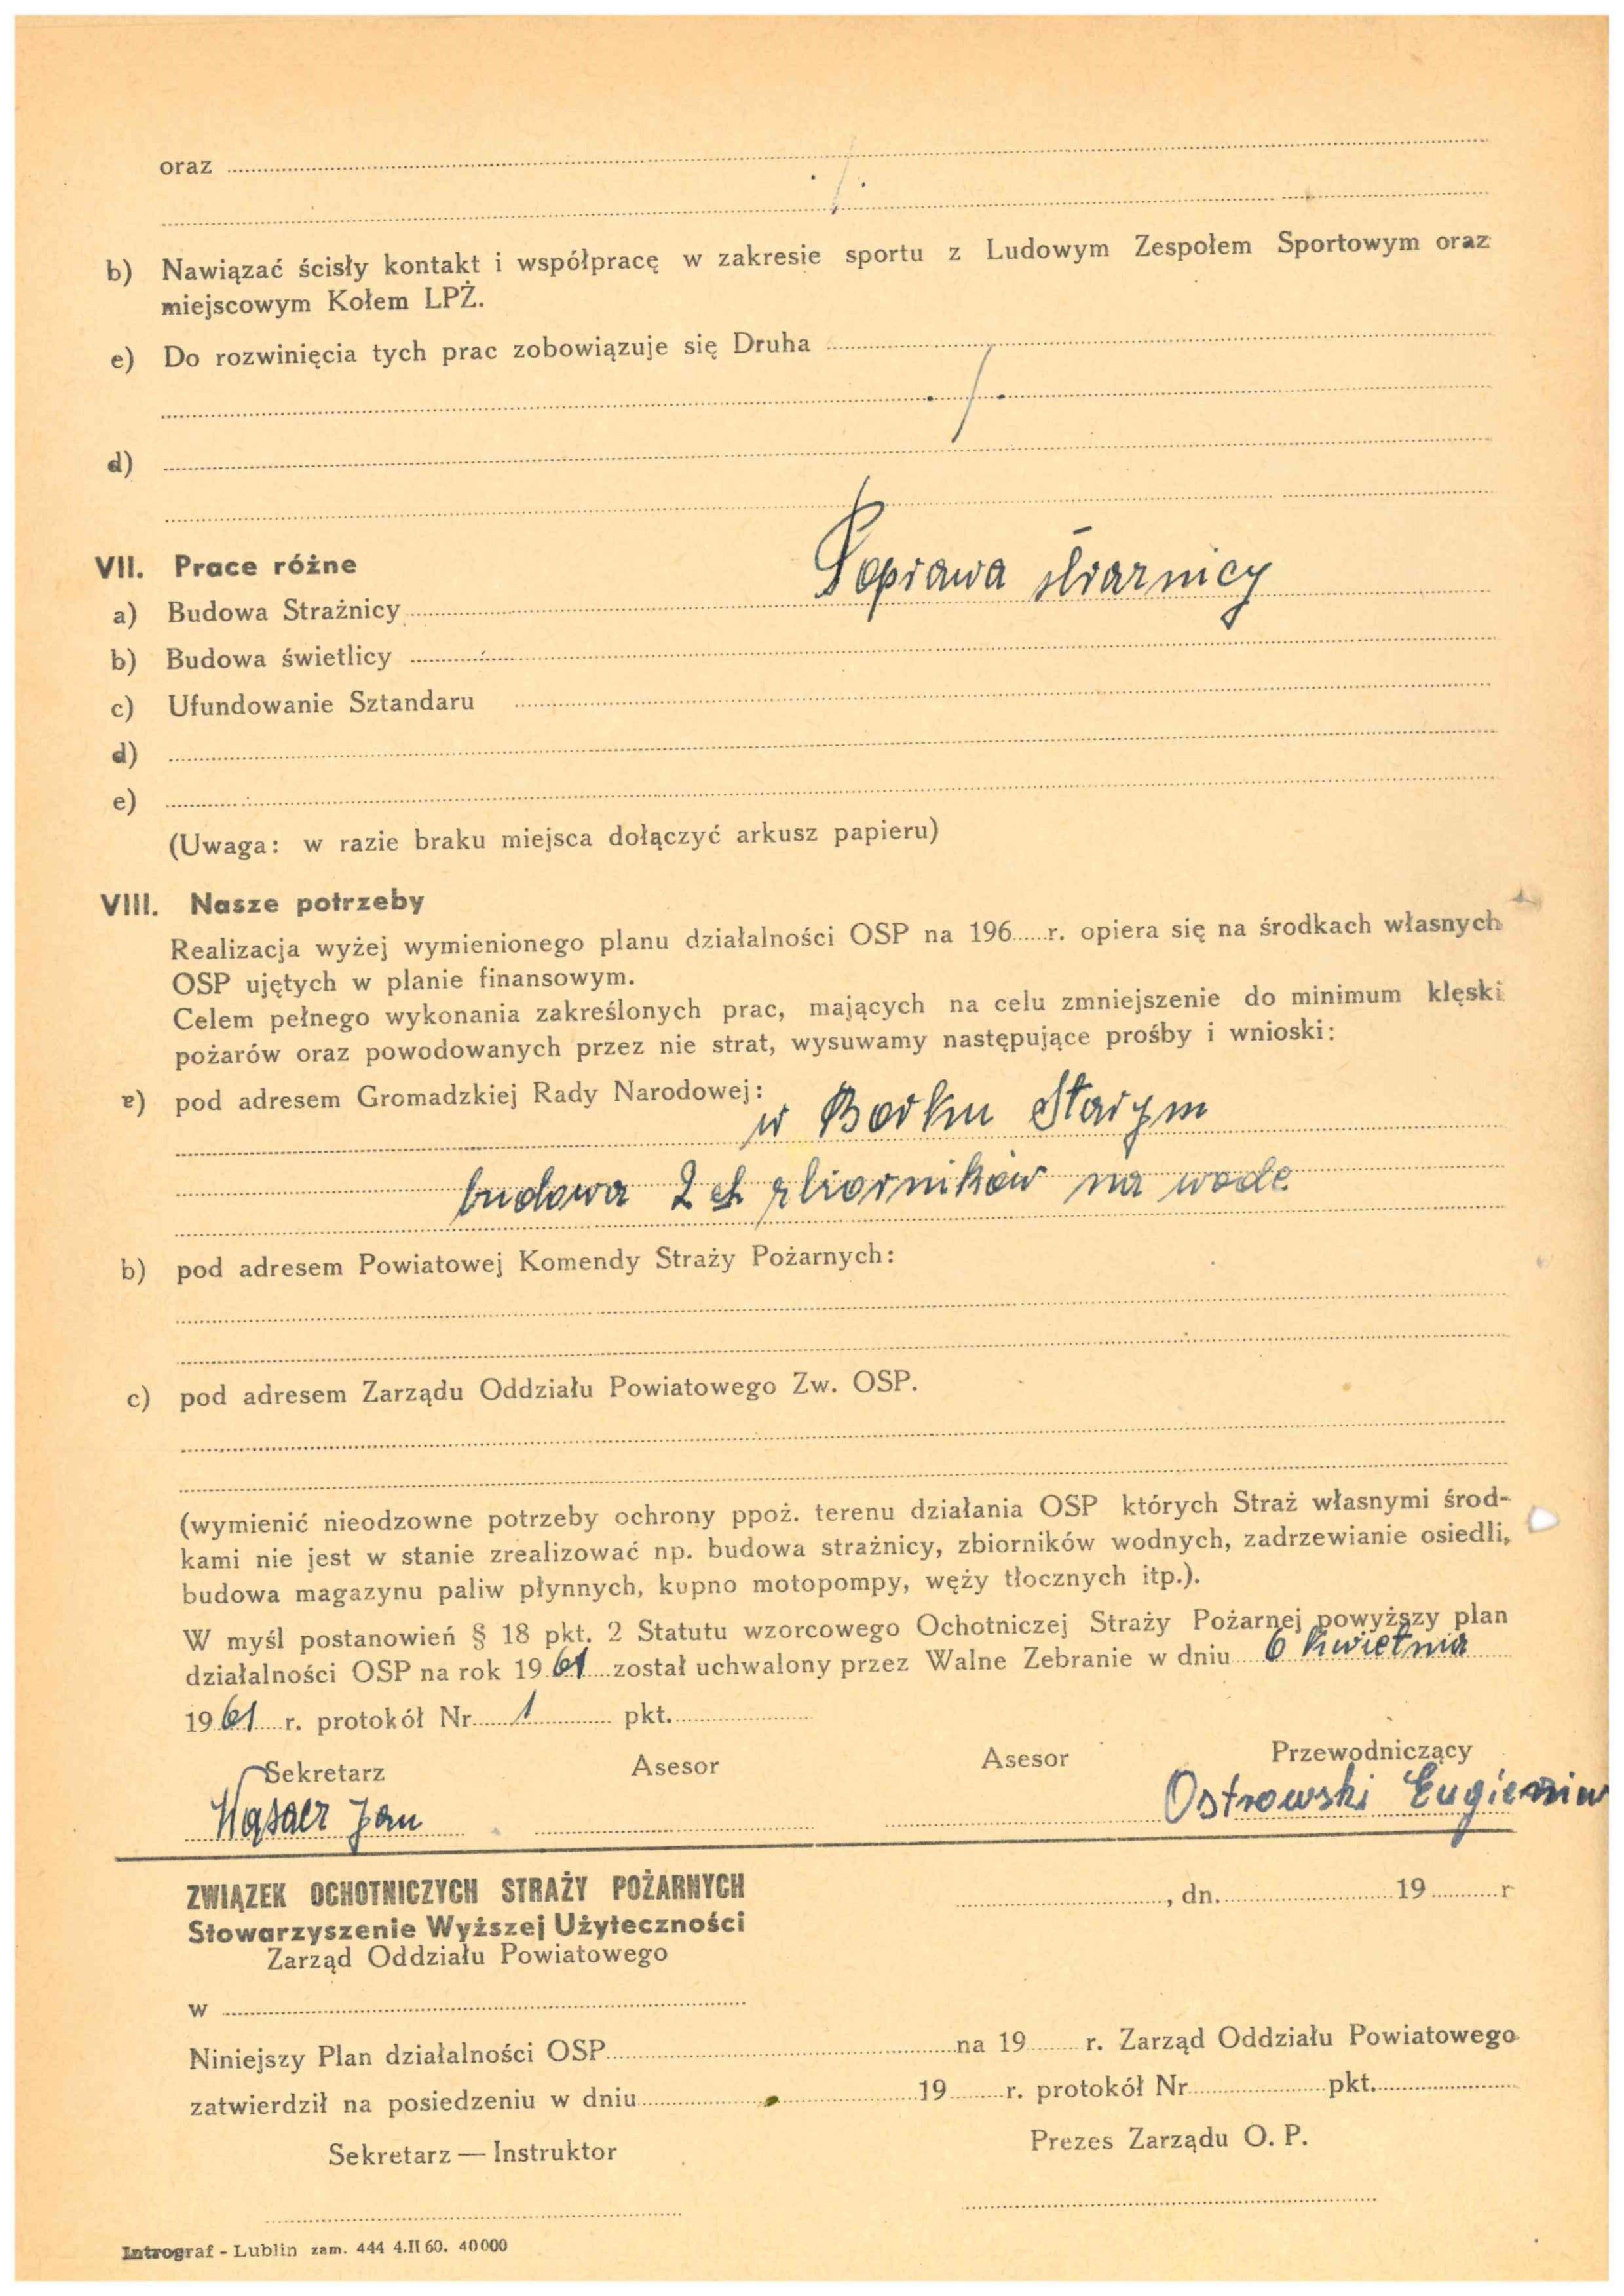 oraz
./.
b) Nawiązać ścisły kontakt i współpracę w zakresie sportu z Ludowym Zespołem Sportowym oraz
miejscowym Kołem LPŻ.
e) Do rozwinięcia tych prac zobowiązuje się Druha
./.
d)
VII. Prace różne
a) Budowa Strażnicy Poprawa
b) Budowa świetlicy
c) Ufundowanie Sztandaru
d)
e)
(Uwaga: w razie braku miejsca dołączyć arkusz papieru)
VIII. Nasze potrzeby
Realizacja wyżej wymienionego planu działalności OSP na 196.....r. opiera się na środkach własnych
OSP ujętych w planie finansowym.
Celem pełnego wykonania zakreślonych prac, mających na celu zmniejszenie do minimum klęski
pożarów oraz powodowanych przez nie strat, wysuwamy następujące prośby i wnioski:
a) pod adresem Gromadzkiej Rady Narodowej:
w Borku Starym
budowa 2 ch zbiorników na wode
b) pod adresem Powiatowej Komendy Straży Pożarnych:
c) pod adresem Zarządu Oddziału Powiatowego Zw. OSP.
(wymienić nieodzowne potrzeby ochrony ppoż. terenu działania OSP których Straż własnymi środ-
kami nie jest w stanie zrealizować np. budowa strażnicy, zbiorników wodnych, zadrzewianie osiedli,
budowa magazynu paliw płynnych, kupno motopompy, węży tłocznych itp.).
W myśl postanowień § 18 pkt. 2 Statutu wzorcowego Ochotniczej Straży Pożarnej powyższy plan
działalności OSP na rok 1961 został uchwalony przez Walne Zebranie w dniu 6 kwietnia
1961 r. protokół Nr 1 pkt.
Sekretarz Asesor Asesor Przewodniczący
Jan Ostrowski Eugieniu
ZWIĄZEK OCHOTNICZYCH STRAŻY POŻARNYCH
, dn. 19 r
Stowarzyszenie Wyższej Użyteczności
Zarząd Oddziału Powiatowego
w
Niniejszy Plan działalności OSP na 19 r. Zarząd Oddziału Powiatowego
zatwierdził na posiedzeniu w dniu 19 r. protokół Nr pkt.
Sekretarz — Instruktor Prezes Zarządu O. P.
Intrograf - Lublin zam. 444 4.II 60. 40000